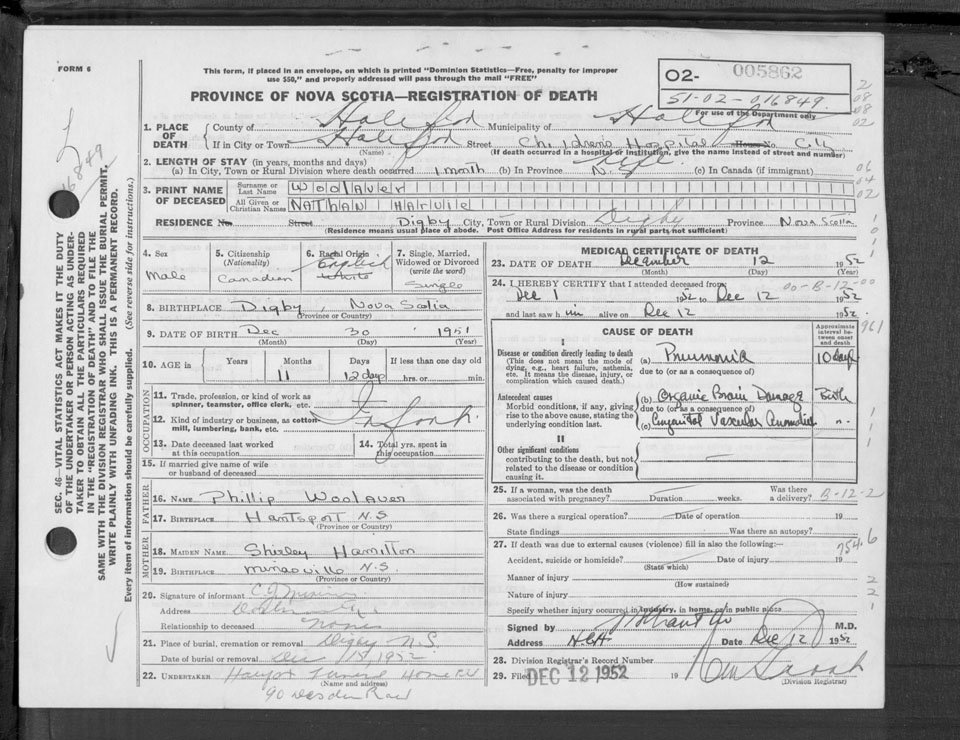 FORM 6
This form, if placed in an envelope, on which is printed "Dominion Statistics—Free, penalty for improper
use $50," and properly addressed will pass through the mail "FREE"
PROVINCE OF NOVA SCOTIA—REGISTRATION OF DEATH
02- 005862
51-02-016849
For use of the Department only
16849
SEC. 46—VITAL STATISTICS ACT MAKES IT THE DUTY
OF THE UNDERTAKER OR PERSON ACTING AS UNDER-
TAKER TO OBTAIN ALL THE PARTICULARS REQUIRED
IN THE "REGISTRATION OF DEATH" AND TO FILE THE
SAME WITH THE DIVISION REGISTRAR WHO SHALL ISSUE THE BURIAL PERMIT.
WRITE PLAINLY WITH UNFADING INK. THIS IS A PERMANENT RECORD.
Every item of information should be carefully supplied. (See reverse side for instructions.)
1. PLACE OF DEATH
County of Halifax Municipality of Halifax
If in City or Town Halifax Street Childrens Hospital House No. City
(Name) (If death occurred in a hospital or institution, give the name instead of street and number)
2. LENGTH OF STAY (in years, months and days)
(a) In City, Town or Rural Division where death occurred 1 month (b) In Province N.S. (c) In Canada (if immigrant)
3. PRINT NAME OF DECEASED
Surname or Last Name Woolaver
All Given or Christian Names NATHAN HARVIE
RESIDENCE No. Street Digby City, Town or Rural Division Digby Province Nova Scotia
(Residence means usual place of abode. Post Office Address for residents in rural parts not sufficient)
4. Sex Male
5. Citizenship (Nationality) Canadian
6. Racial Origin English White
7. Single, Married, Widowed or Divorced (write the word) Single
8. BIRTHPLACE Digby, Nova Scotia
(Province or Country)
9. DATE OF BIRTH Dec 30 1951
(Month) (Day) (Year)
10. AGE in Years Months 11 Days 12 days If less than one day hrs. or min.
OCCUPATION
11. Trade, profession, or kind of work as spinner, teamster, office clerk, etc.
12. Kind of industry or business, as cotton-mill, lumbering, bank, etc.
13. Date deceased last worked at this occupation
14. Total yrs. spent in this occupation
15. If married give name of wife or husband of deceased
FATHER
16. NAME Phillip Woolaver
17. BIRTHPLACE Hantsport N.S
(Province or Country)
MOTHER
18. MAIDEN NAME Shirley Hamilton
19. BIRTHPLACE N.S.
(Province or Country)
20. Signature of informant
Address
Relationship to deceased None
21. Place of burial, cremation or removal Digby N.S.
Date of burial or removal Dec 1952
22. UNDERTAKER Funeral Home
(Name and address)
90
MEDICAL CERTIFICATE OF DEATH
23. DATE OF DEATH December 12 1952
(Month) (Day) (Year)
24. I HEREBY CERTIFY that I attended deceased from
Dec 1 1952 to Dec 12 1952
and last saw him alive on Dec 12 1952
CAUSE OF DEATH
Approximate interval between onset and death
I
Disease or condition directly leading to death (a) Pneumonia 10 days
(This does not mean the mode of dying, e.g., heart failure, asthenia, etc. It means the disease, injury, or complication which caused death.)
due to (or as a consequence of)
Antecedent causes (b) Organic Brain Damage Birth
Morbid conditions, if any, giving rise to the above cause, stating the underlying condition last.
due to (or as a consequence of)
(c) Congenital Vascular Anomalies "
II
Other significant conditions
contributing to the death, but not related to the disease or condition causing it.
25. If a woman, was the death associated with pregnancy? Duration weeks. Was there a delivery? B-12-2
26. Was there a surgical operation? Date of operation 19
State findings Was there an autopsy?
27. If death was due to external causes (violence) fill in also the following:—
Accident, suicide or homicide? Date of injury 19
(State which)
754.6
Manner of injury
(How sustained)
Nature of injury
Specify whether injury occurred in industry, in home, or in public place
Signed by M.D.
Address Date Dec 12 1952
28. Division Registrar's Record Number
29. Filed DEC 12 1952 19
(Division Registrar)